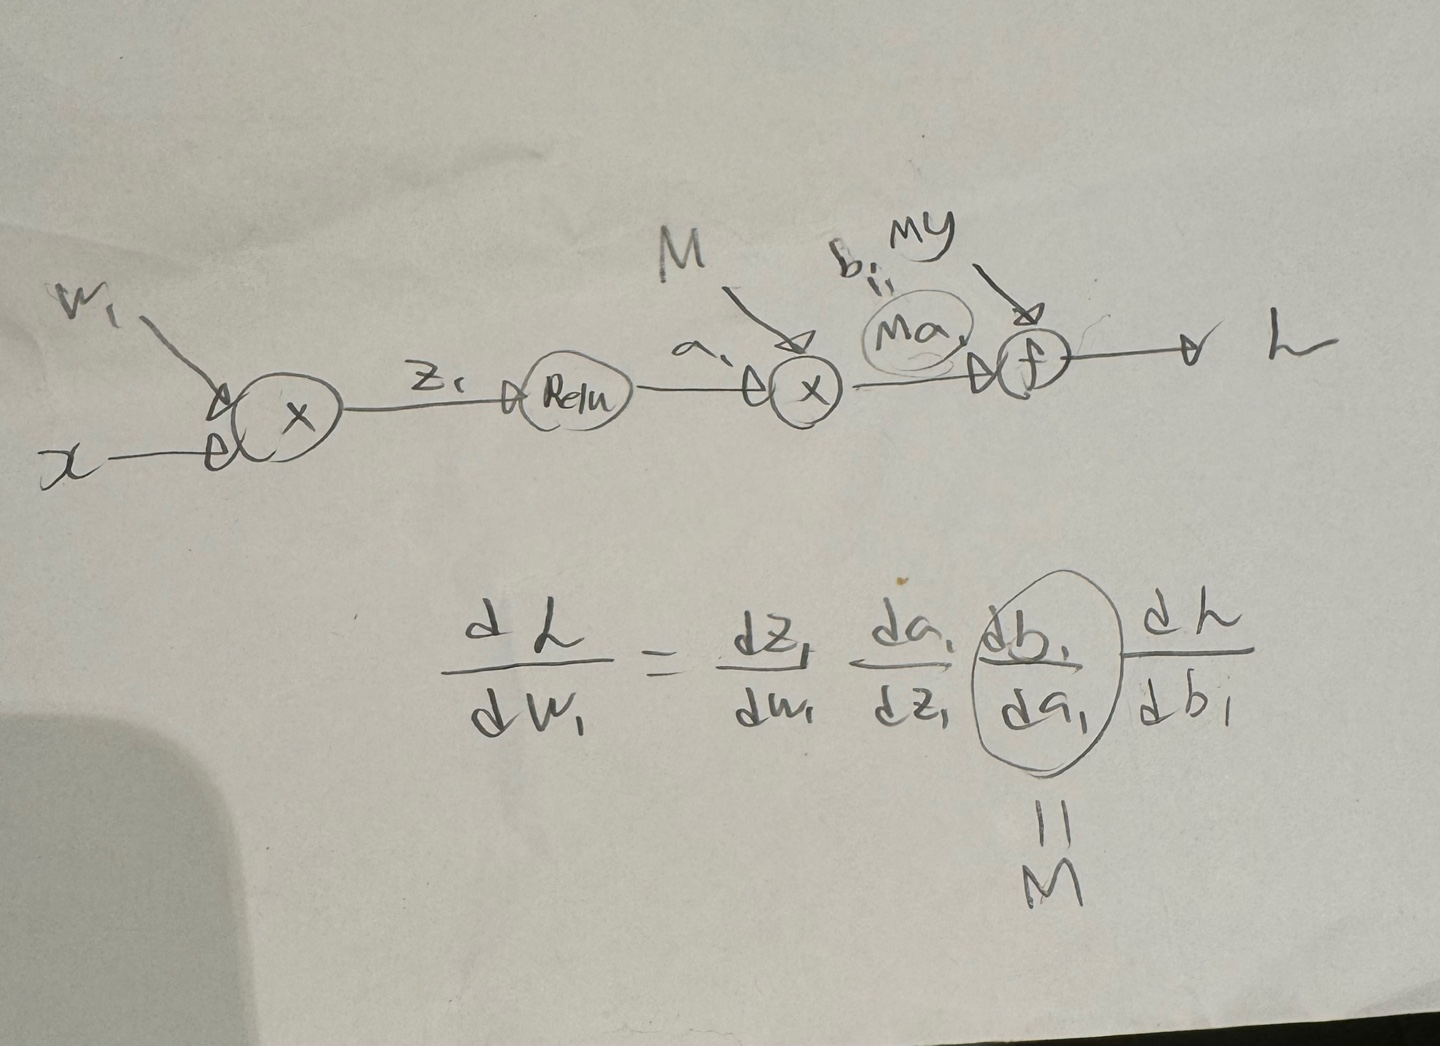 W₁
x
×
z₁
Relu
a₁
M
×
b₁
||
Ma₁
My
f
L
dL/dw₁ = dz₁/dw₁ da₁/dz₁ db₁/da₁ dL/db₁
||
M